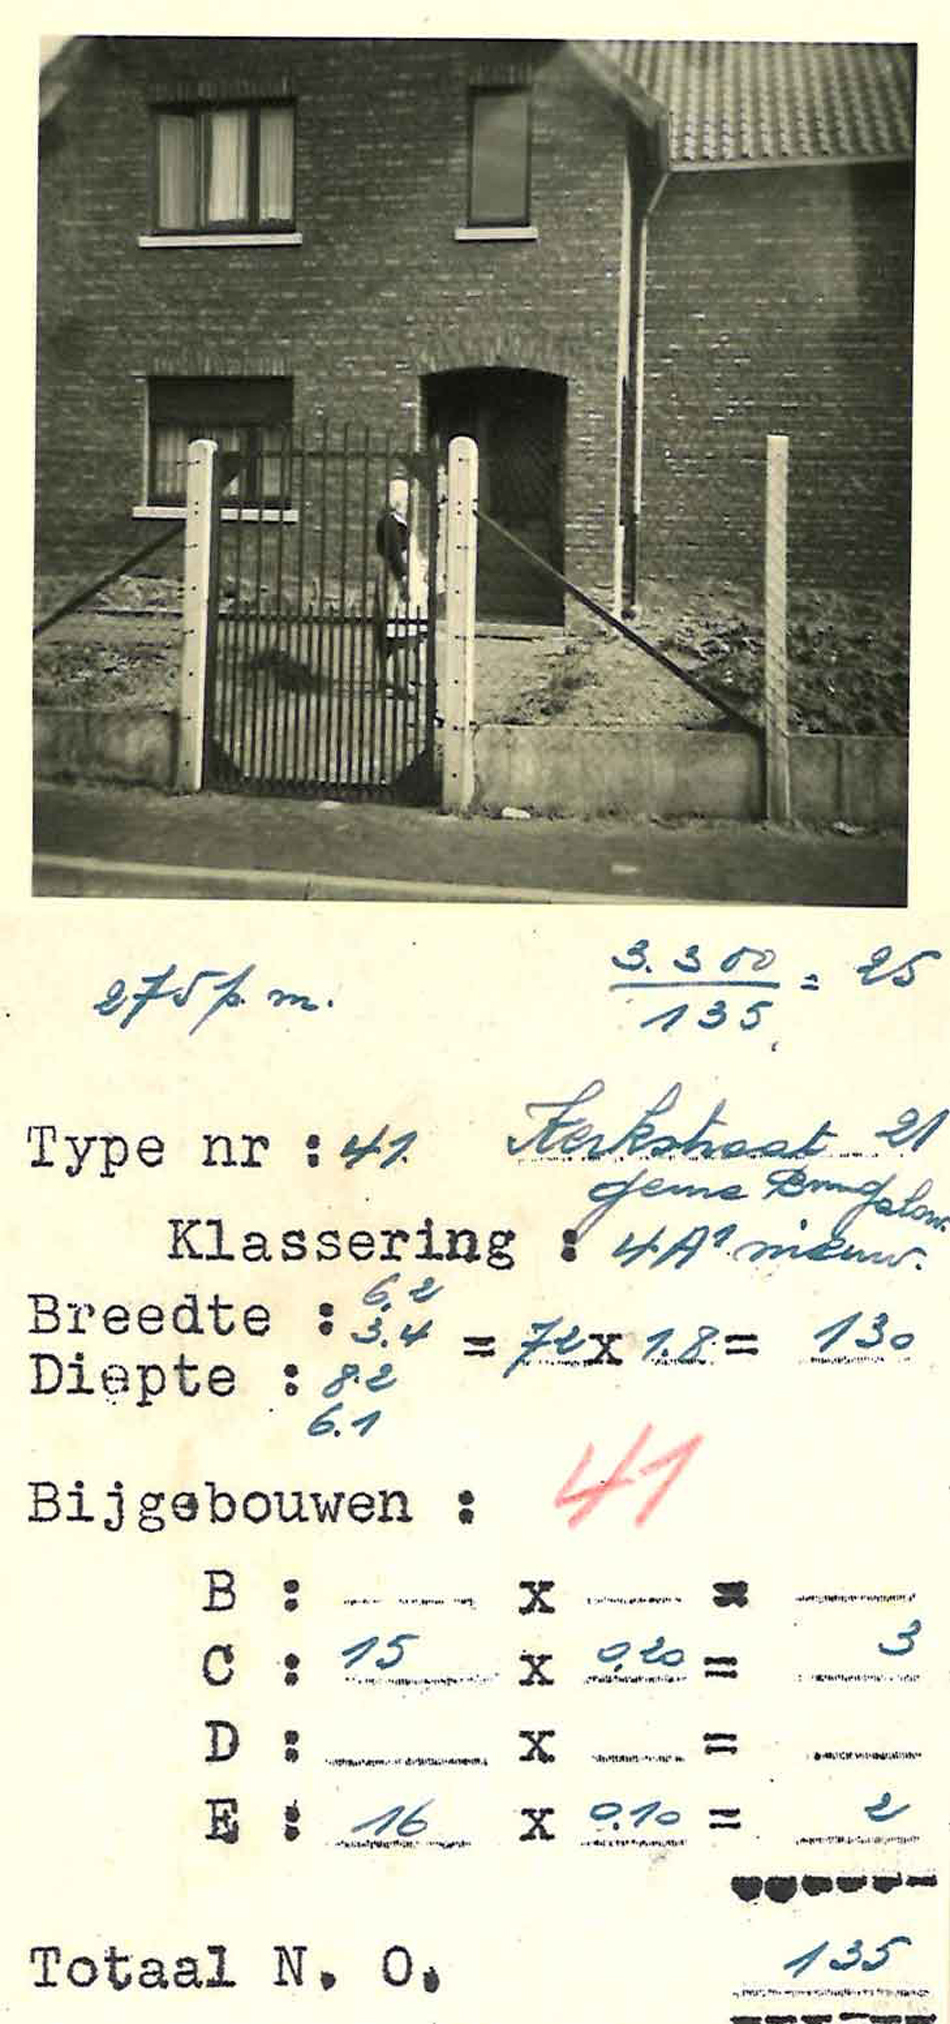 275 p. m.
3.300
135 = 25
Type nr : 41. Kerkstraat 21
Klassering : 4A¹ nieuw.
Breedte : 6.2
3.4 = 72 x 1.8 = 130
Diepte : 8.2
6.1
Bijgebouwen : 41
B : x =
C : 15 x 0,20 = 3
D : x =
E : 16 x 0,10 = 2
Totaal N. O. 135